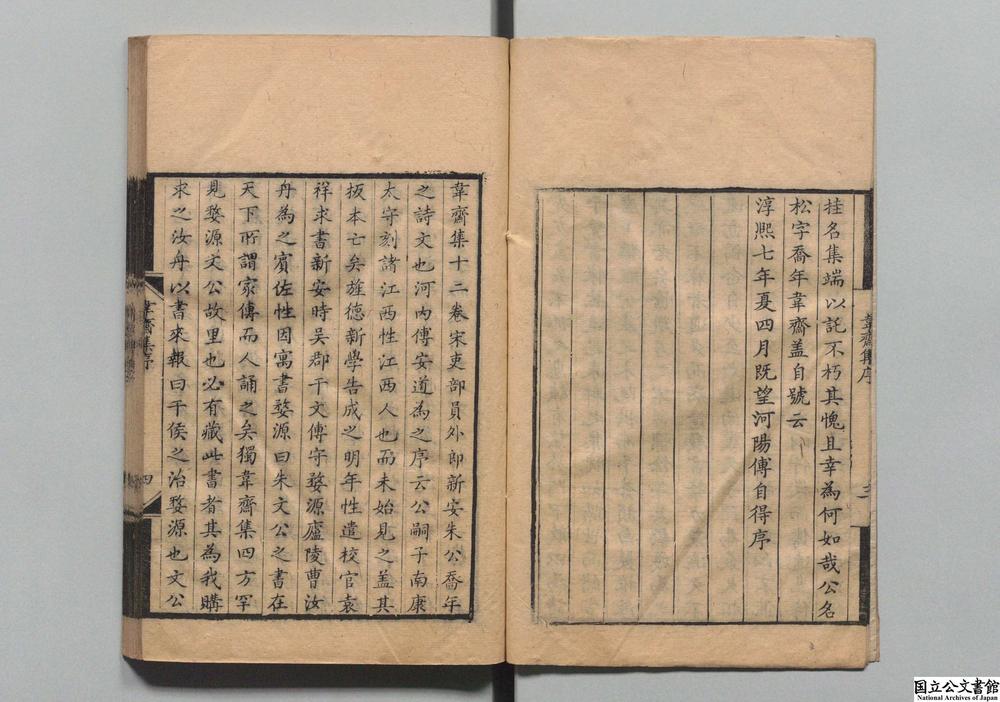 挂名集端以託不朽其愧且幸為何如哉公名
松字喬年韋齋盖自號云
淳熙七年夏四月既望河陽傅自得序
韋齋集序
韋齋集十二卷宋吏部員外郎新安朱公喬年
之詩文也河内傅安道為之序云公嗣子南康
太守刻諸江西性江西人也而未始見之盖其
板本亡矣旌德新學告成之明年性遣校官袁
祥求書新安時吳郡干文傳守婺源廬陵曹汝
舟為之賓佐性因寓書婺源曰朱文公之書在
天下所謂家傳而人誦之矣獨韋齋集四方罕
見婺源文公故里也必有藏此書者其為我購
求之汝舟以書來報曰干侯之治婺源也文公
韋齋集序
四
国立公文書館
National Archives of Japan